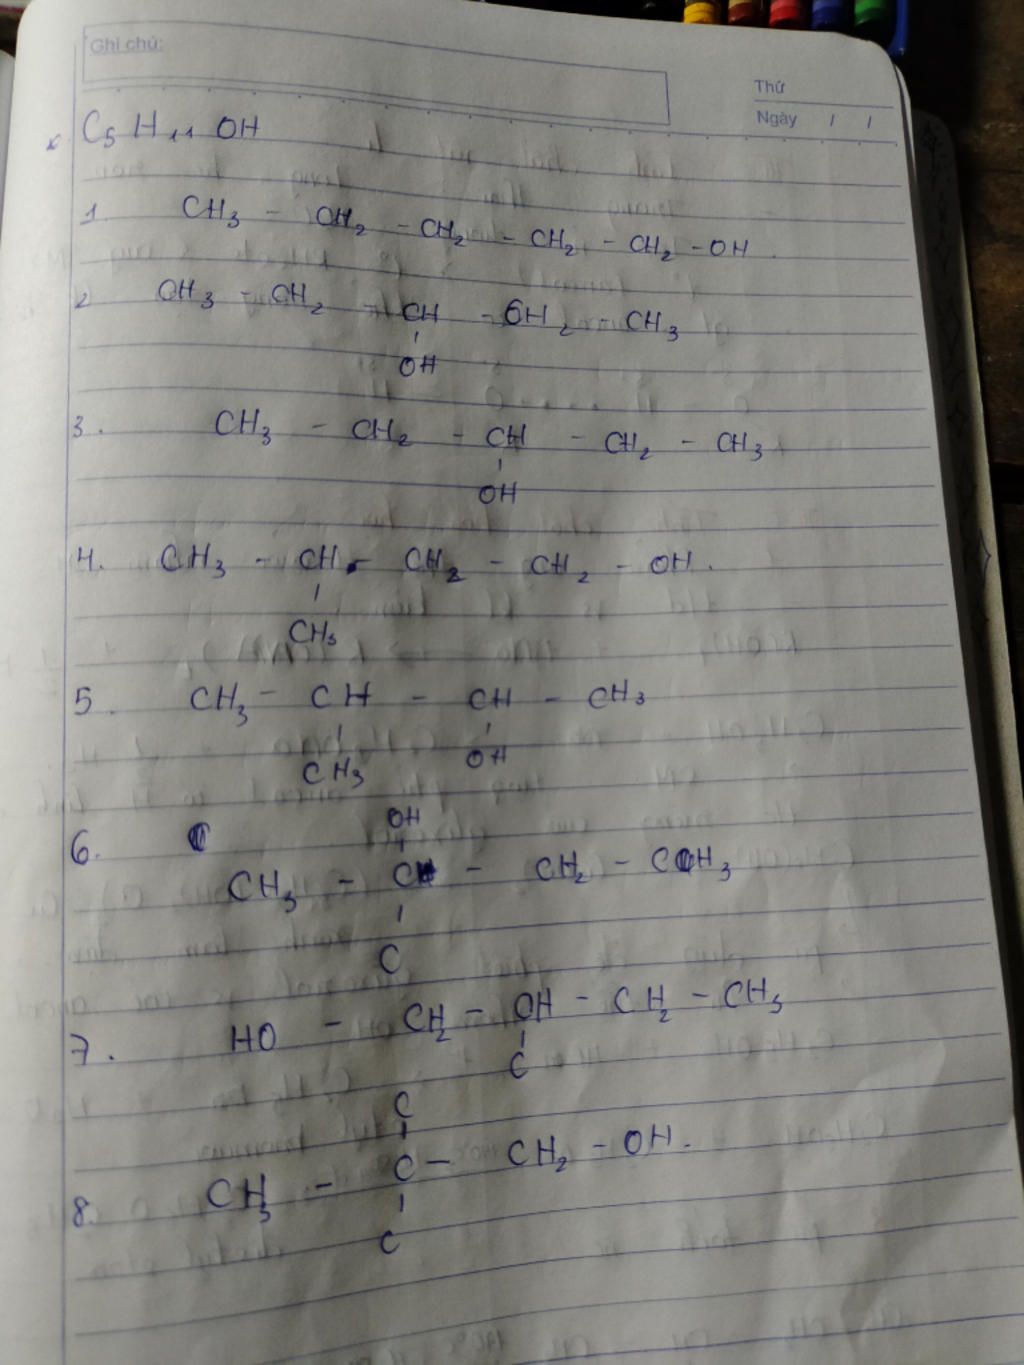 Ghi chú:
Thứ
Ngày / /
C5H11OH
1. CH3 - CH2 - CH2 - CH2 - CH2 - OH.
2 CH3 - CH2 - CH - CH2 - CH3
OH
3. CH3 - CH2 - CH - CH2 - CH3
OH
4. CH3 - CH - CH2 - CH2 - OH.
CH3
5. CH3 - CH - CH - CH3
CH3 OH
OH
6. CH3 - C - CH2 - CH3
C
7. HO - CH2 - CH - CH2 - CH3
C
C
8. CH3 - C - CH2 - OH.
C